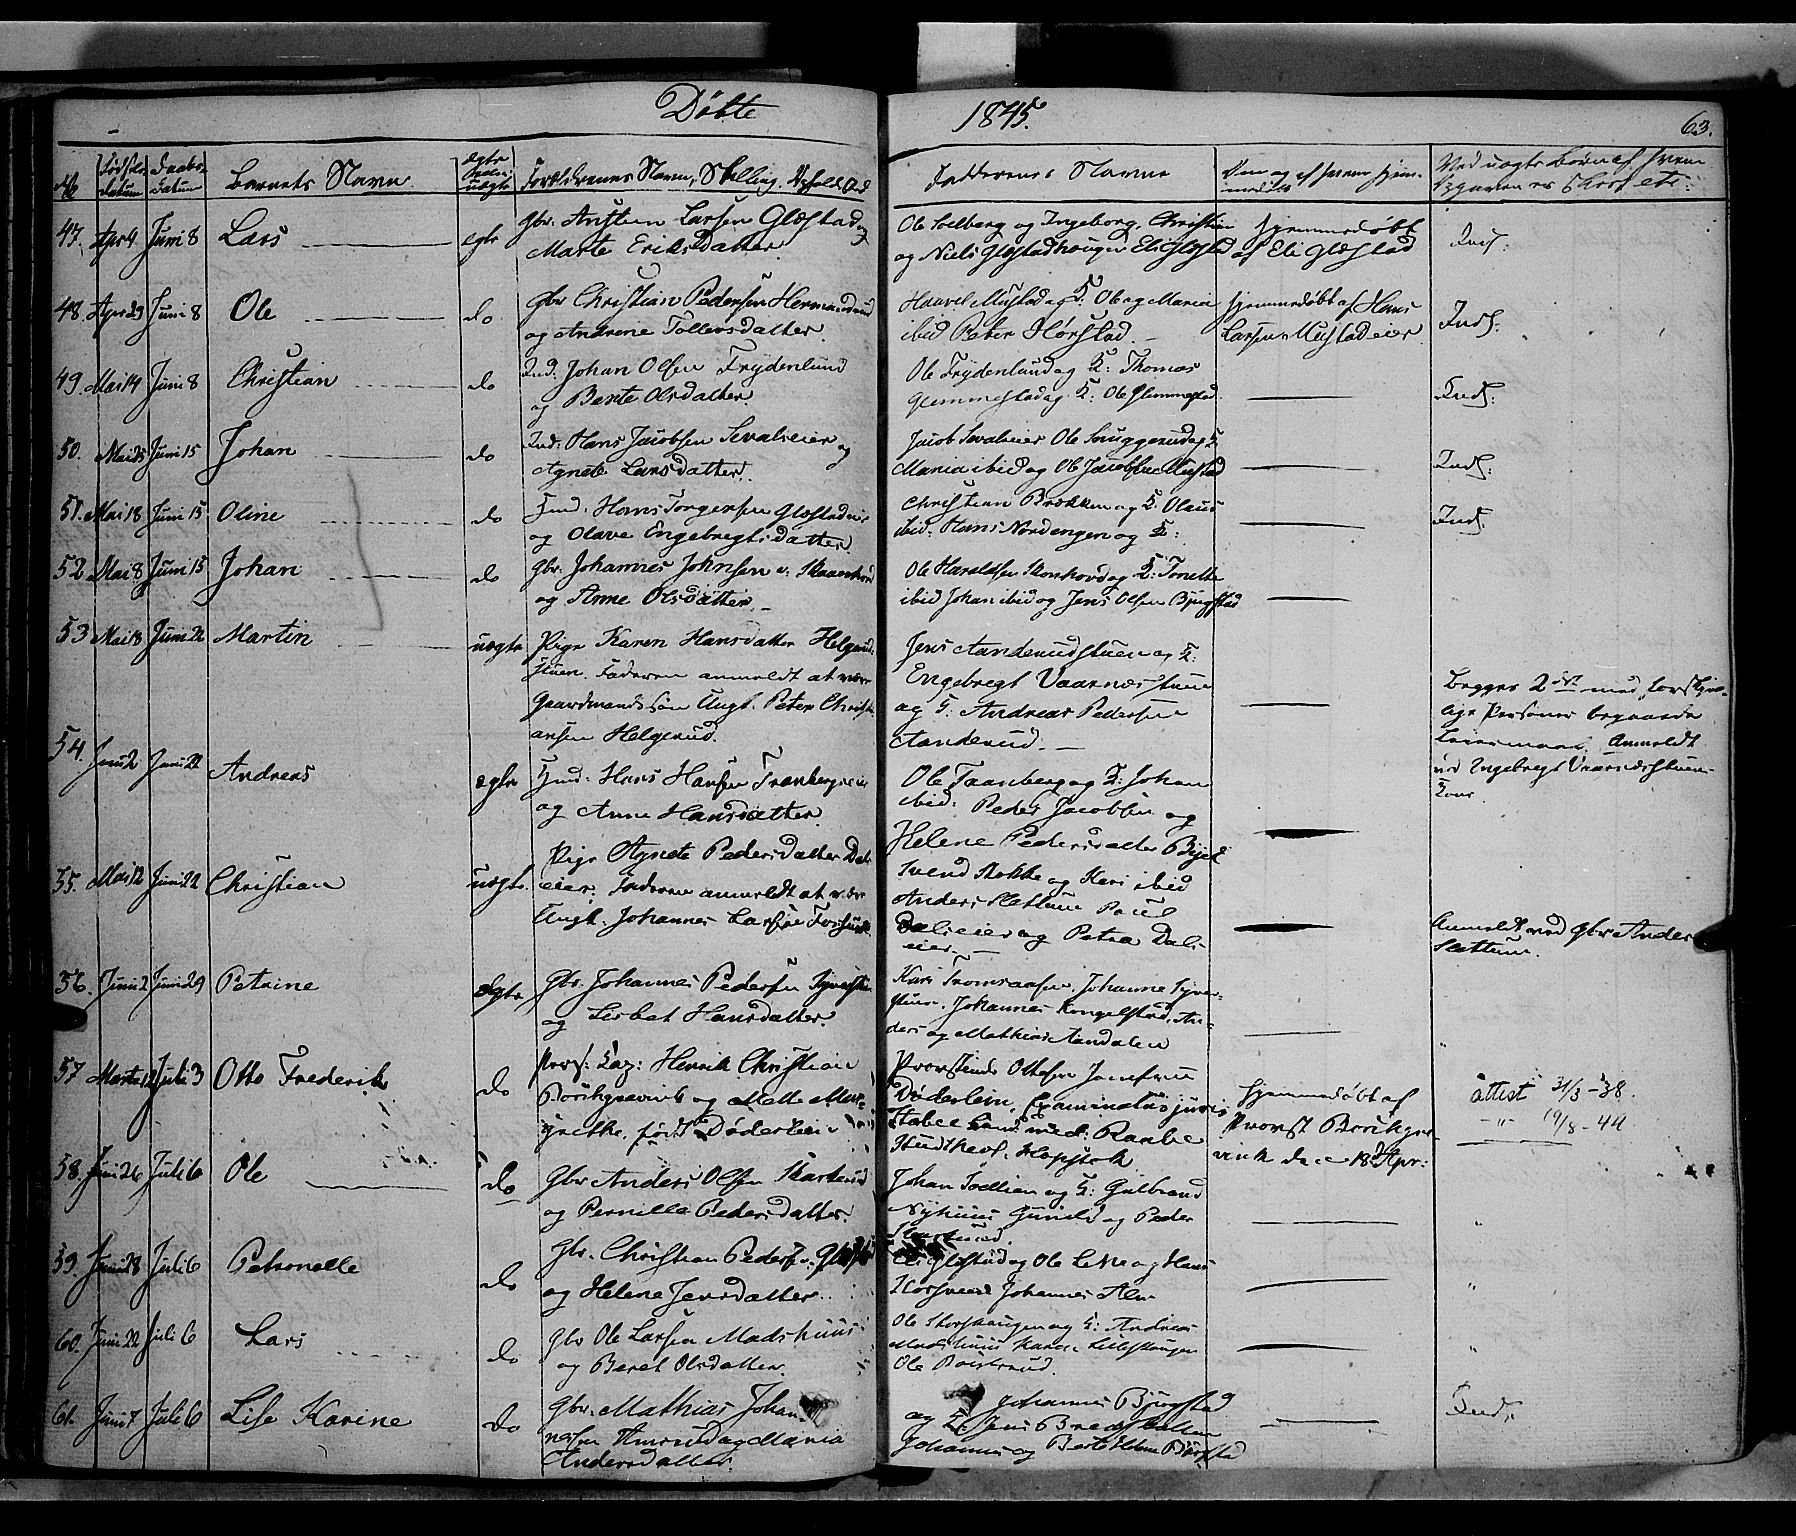 Døbte 1845. 63.
№ Fødsels datum Daabs datum Barnets Navn ægte eller uægte Forældrenes Navn, Stilling, Opholdssted Faddernes Navne Om og af hvem hjemmedøbt Ved uægte Børn af hvem
Opgaven er skeet etc:
47. Apr 4 Juni 8 Lars egte Gbr. Ansteen Larsen Glæstad og
Marte Eriksdatter.
Ole Solberg og Ingeborg, Christian
og Niels Glæstadhaugen Eli Glæstad
Hjemmedøbt
af Eli Glæstad
Inds:
48. Apr 29 Juni 8 Ole do Gbr Christian Pedersen Hermandrud
og Andrine Tollevsdatter.
Haavel Mustad og K: Ole og Marie
ibid Peter Hørstad.
Hjemmedøbt af Hans
Larsen Mustadeier.
Inds:
49. Mai 14 Juni 8 Christian do Ind: Johan Olsen Frydenlund
og Berte Olsdatter.
Ole Frydenlund og K: Thomas
Glemmestad og K: Ole Glemmestad.
Inds:
50. Mai 25 Juni 15 Johan do Ind: Hans Jacobsen Sevaleier og
Agnete Larsdatter.
Jacob Sevaleier Ole Snuggerud og K
Maria ibid og Ole Jacobsen Mustad
Inds:
51. Mai 18 Juni 15 Oline do Hmd: Hans Torgersen Glæstadeie
og Olave Engebregtsdatter.
Christian Brekken og K: Olaus
ibid: Hans Nordengen og K:
Inds:
52 Mai 8 Juni 15 Johan do Gbr. Johannes Johnsen
og Anne Olsdatter.
Ole Haraldsen Skonhovd og K: Tonette
ibid Johan ibid og Jens Olsen Bjugstad
53 Mai 18 Juni 22 Martin uægte Pige Karen Hansdatter Helgerud-
stuen. Faderen anmeldt at være
Gaardmandssøn Ungk. Peter Christi-
ansen Helgerud.
Jens Aanderudstuen og K:
Engebregt Vaarnæsstuen
og K: Andreas Pedersen
Aanderud.
Begges 2den med forskjel-
lige Personer begaaede
Leiermaal. Anmeldt
ved Engebregt Vaarnæsstuen
54. Juni 2 Juni 22 Andreas ægte Hmd: Hans Hansen Tranbergeie
og Anne Hansdatter.
Ole Taanberg og K: Johan
ibid: Peder Jacobsen og
Helene Pedersdatter
55. Mai 12 Juni 22 Christian uægte Pige Agnete Pedersdatter Dals-
eier. Faderen anmeldt at være
Ungk. Johannes Larsen
Svend Stokke og Kari ibid
Anders Slettum Poul
Dalseier og Petra Dals-
eier.
Anmeldt ved Gbr Anders
Slettum.
56. Juni 2 Juni 29 Petrine ægte Gbr. Johannes Pedersen
og Lisbet Hansdatter.
Kari Tromsaasen, Johanne Syver-
stuen, Johannes Kongelstad, An-
ders og Mathias Aandalen
"
57 Marts 12 Juli 3 Otto Frederik do Prov: Cap: Henrik Christian
Borchgrevink og Mette Mar-
grethe født Døderlein
Provstinde Ottesen Jomfrue
Døderlein, Examinatus juris
Stabel Cand med: Raabe
Studthevl. Hopstok
Hjemmedøbt af
Provst Borchgre-
vink den 18de Apr:
attest 31/3-38.
- " - 19/8-44
58. Juni 26 Juli 6 Ole do Gbr Anders Olsen Skarterud
og Pernille Pedersdatter.
Johan Tollien og K: Gulbrand
Nyhuus Gunild og Peder
"
59. Juni 18 Juli 6 Petronelle do Gbr. Christian Pedersen Glæstad
og Helene Jensdatter.
Eli Glæstad og Ole Lekke og Hans
Korsveed Johannes Alm
"
60. Juni 22 Juli 6 Lars do Gbr Ole Larsen Madshuus
og Beret Olsdatter.
Ole Storhaugen og K: Andreas
Madshuus Karen Lillehaugen
Ole Boistrud.
"
61. Juni 7 Juli 6 Lise Karine do Gbr. Mathias Johan-
nesen Amrud og Maria
Andersdatter.
Johannes Bjugstad
og K. Jens Bredskallen
Johannes og Berte Helene Bjugstad
Inds.